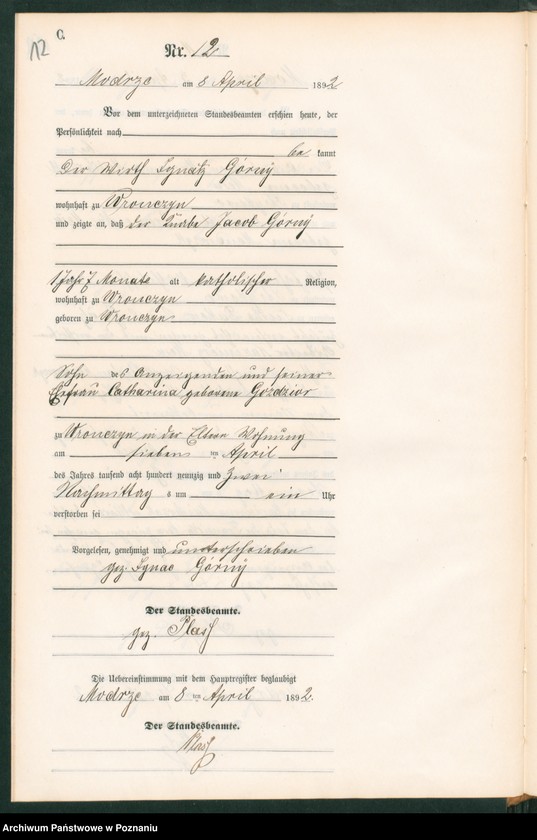 12
C.
Nr. 12
Modrze am 8 April 1892
Vor dem unterzeichneten Standesbeamten erschien heute, der
Persönlichkeit nach
be kannt
Der Wirth Ignatz Górny
wohnhaft zu Wronczyn
und zeigte an, daß der Knabe Jacob Górny
1 Jahr 7 Monate alt katholischer Religion,
wohnhaft zu Wronczyn
geboren zu Wronczyn
Sohn des Anzeigenden und seiner
Ehefrau Catharina geborene Gozdzior
zu Wronczyn in der Eltern Wohnung
am sieben ten April
des Jahres tausend acht hundert neunzig und zwei
Nachmittag s um ein Uhr
verstorben sei
Vorgelesen, genehmigt und unterschrieben
gez. Ignac Górny
Der Standesbeamte.
gez.
Die Uebereinstimmung mit dem Hauptregister beglaubigt
Modrze am 8 ten April 1892.
Der Standesbeamte.
Archiwum Państwowe w Poznaniu